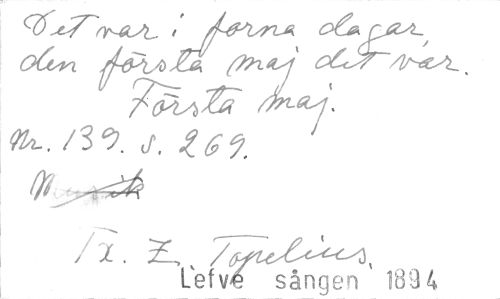 Det var i forna dagar
den första maj det var.
Första maj.
Nr. 139. s. 269.
Musik
Tx. Z. Topelius.
Lefve sången 1894